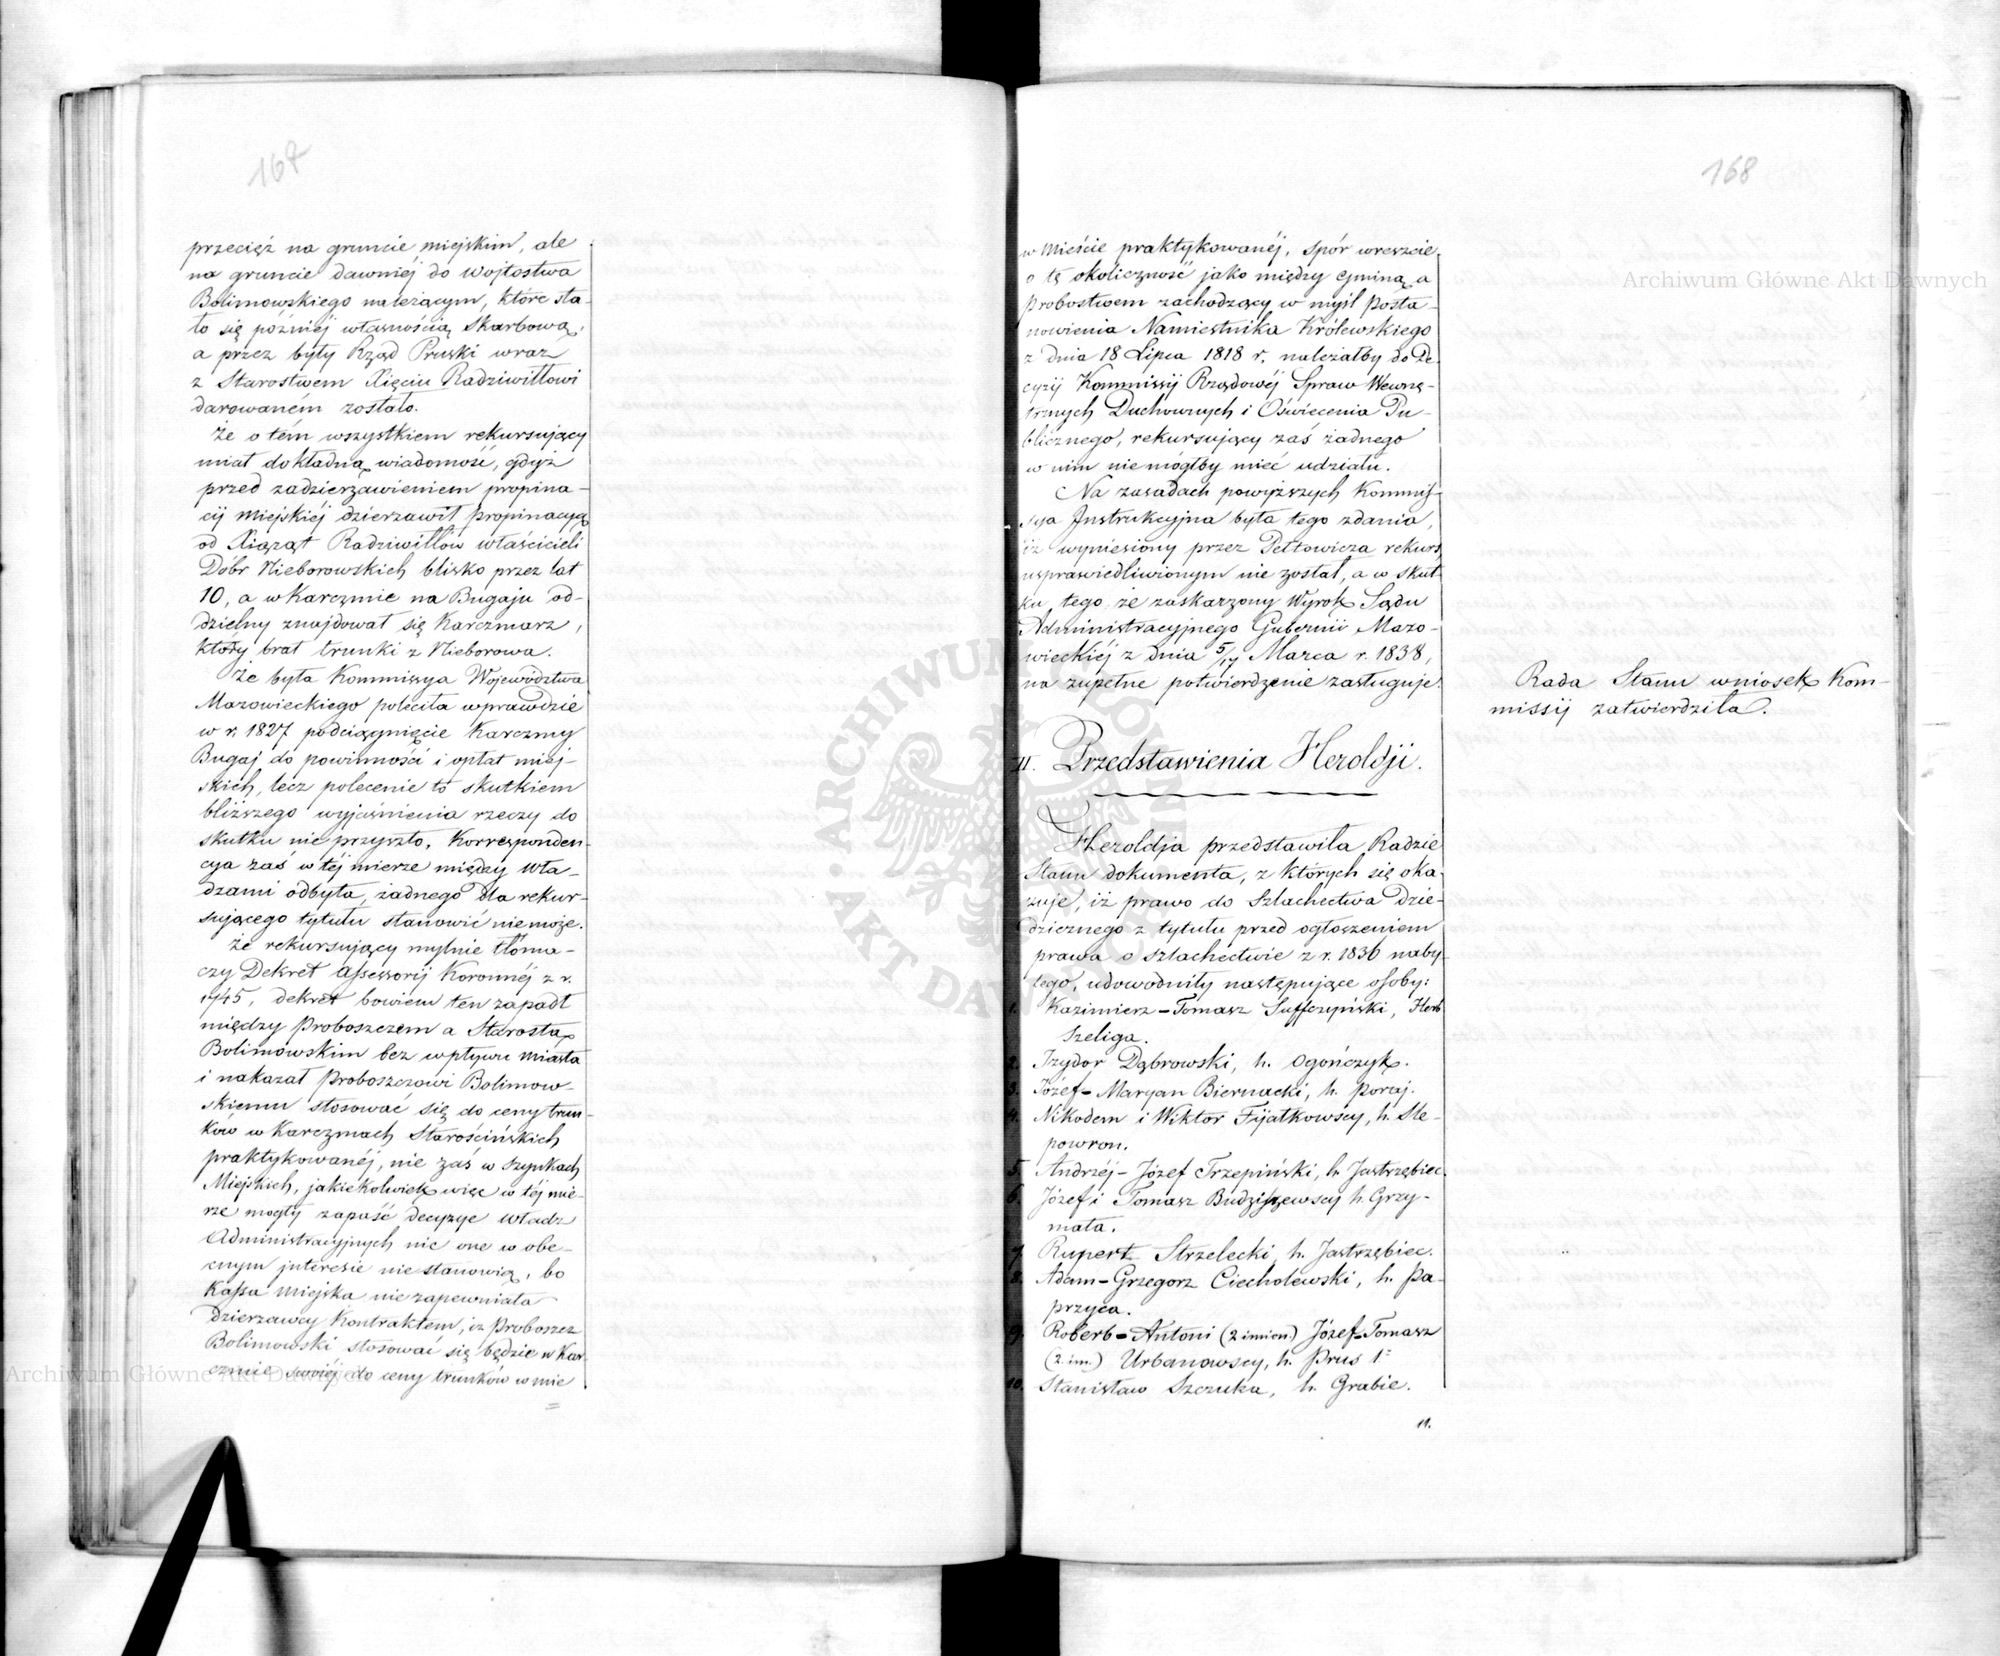 167
przecięż na gruncie miejskim, ale
na gruncie dawniej do Wojtostwa
Bolimowskiego należącym, które sta-
ło się późniéj własnością Skarbową,
a przez były Rząd Pruski wraz
z Starostwem Xięciu Radziwiłłowi
darowaném zostało.
Że o tém wszystkiem rekursujący
miał dokładną wiadomość, gdyż
przed zadzierżawieniem propina-
cij Miejskiéj dzierżawił propinacyą
od Xiążąt Radziwiłłów właścicieli
Dóbr Nieborowskich blisko przez lat
10, a w Karczmie na Bugaju od-
dzielny znajdował się Karczmarz,
który brał trunki z Nieborowa.
Że była Kommissya Województwa
Mazowieckiego poleciła wprawdzie
w r. 1827 podciągnięcie Karczmy
Bugaj do powinności i opłat miej-
skich, lecz polecenie to skutkiem
bliższego wyjaśnienia rzeczy do
skutku nie przyszło, Korresponden-
cya zaś w téj mierze między Wła-
dzami odbyta, żadnego dla rekur-
sującego tytułu stanowić nie może.
Że rekursujący mylnie tłóma-
czy Dekret Assessorij Koronnéj z r.
1745, dekret bowiem ten zapadł
między Proboszczem a Starostą
Bolimowskim bez wpływu Miasta
i nakazał Proboszczowi Bolimow-
skiemu stosować się do ceny trun-
ków w Karczmach Starościńskich
praktykowanéj, nie zaś w szynkach
Miejskich, jakiekolwiek więc w téj mie-
rze mogły zapaść decyzye Władz
Administracyjnych nic one w obe-
cnym interesie nie stanowią, bo
Kassa Miejska nie zapewniała
Dzierżawcy Kontraktem, iż Proboszcz
Bolimowski stosować się będzie w Kar-
czmie swoiéj do ceny trunków w mie
=
168
w Mieście praktykowanéj, spór wreszcie
o tę okoliczność jako między Gminą a
Probostwem zachodzący w myśl Posta-
nowienia Namiestnika Królewskiego
z dnia 18 Lipca 1818 r. należałby do De-
cyzij Kommissij Rządowéj Spraw Wewnę-
trznych Duchownych i Oświecenia Pu-
blicznego, rekursujący zaś żadnego
w nim nie mógłby mieć udziału.
Na zasadach powyższych Kommis-
sya Instrukcyjna była tego zdania,
iż wyniesiony przez Pełtowicza rekurs
usprawiedliwionym nie został, a w skut-
ku tego że zaskarżony Wyrok Sądu
Administracyjnego Gubernii Mazo-
wieckiéj z dnia 5/17 Marca r. 1838,
na zupełne potwierdzenie zasługuje.
Rada Stanu wniosek Kom-
missij zatwierdziła.
II. Przedstawienia Heroldji.
Heroldja przedstawiła Radzie
Stanu dokumenta, z których się oka-
zuje, iż prawo do Szlachectwa Dzie-
dzicznego z tytułu przed ogłoszeniem
prawa o szlachectwie z r. 1836 naby-
tego, udowodniły następujące osoby:
1. Kazimierz-Tomasz Suffczyński, Herb
Szeliga.
2. Izydor Dąbrowski, h. Ogończyk.
3. Józef-Maryan Biernacki, h. Poraj.
4. Nikodem i Wiktor Fijałkowscy, h. Sle-
powron.
5. Andrzéj-Józef Trzepiński, h. Jastrzębiec.
6. Józef i Tomasz Budziszewscy h. Grzy-
mała.
7. Rupert Strzelecki, h. Jastrzębiec.
8. Adam-Grzegorz Ciecholewski, h. Pa-
przyca.
9. Roberb-Antoni (2 imien.) Józef-Tomasz
(2. im.) Urbanowscy, h. Prus 1º
10. Stanisław Szczuka, h. Grabie.
11.
Archiwum Główne Akt Dawnych
Archiwum Główne Akt Dawnych
ARCHIWUM GŁÓWNE · AKT DAWNYCH